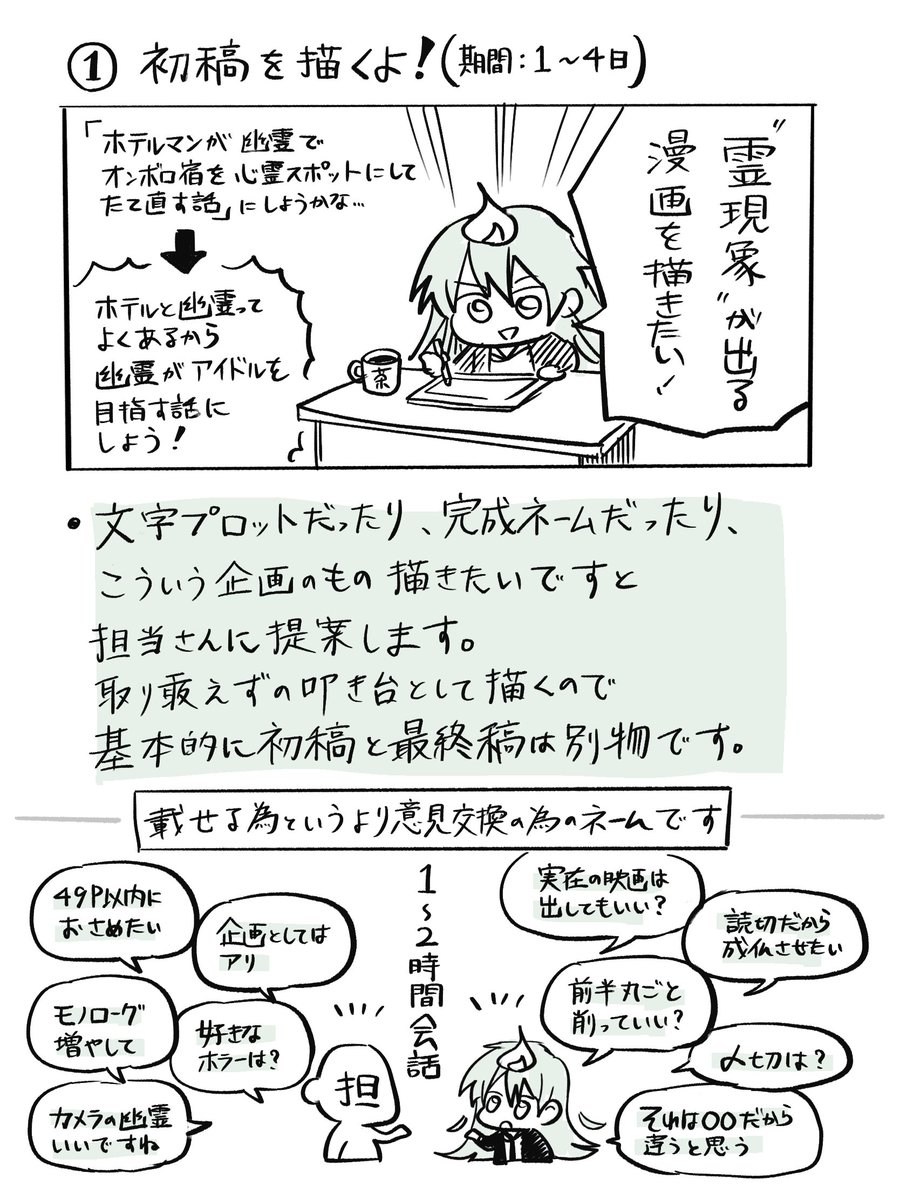 ① 初稿を描くよ！(期間：1～4日)
"霊現象"が出る
漫画を描きたい！
「ホテルマンが幽霊で
オンボロ宿を心霊スポットにして
たて直す話」にしようかな…
ホテルと幽霊って
よくあるから
幽霊がアイドルを
目指す話に
しよう！
茶
・文字プロットだったり、完成ネームだったり、
こういう企画のもの描きたいですと
担当さんに提案します。
取り敢えずの叩き台として描くので
基本的に初稿と最終稿は別物です。
載せる為というより意見交換の為のネームです
1～2時間会話
49P以内に
おさめたい
企画としては
アリ
モノローグ
増やして
好きな
ホラーは？
カメラの幽霊
いいですね
担
実在の映画は
出してもいい？
読切だから
成仏させたい
前半丸ごと
削っていい？
〆切は？
それは〇〇だから
違うと思う